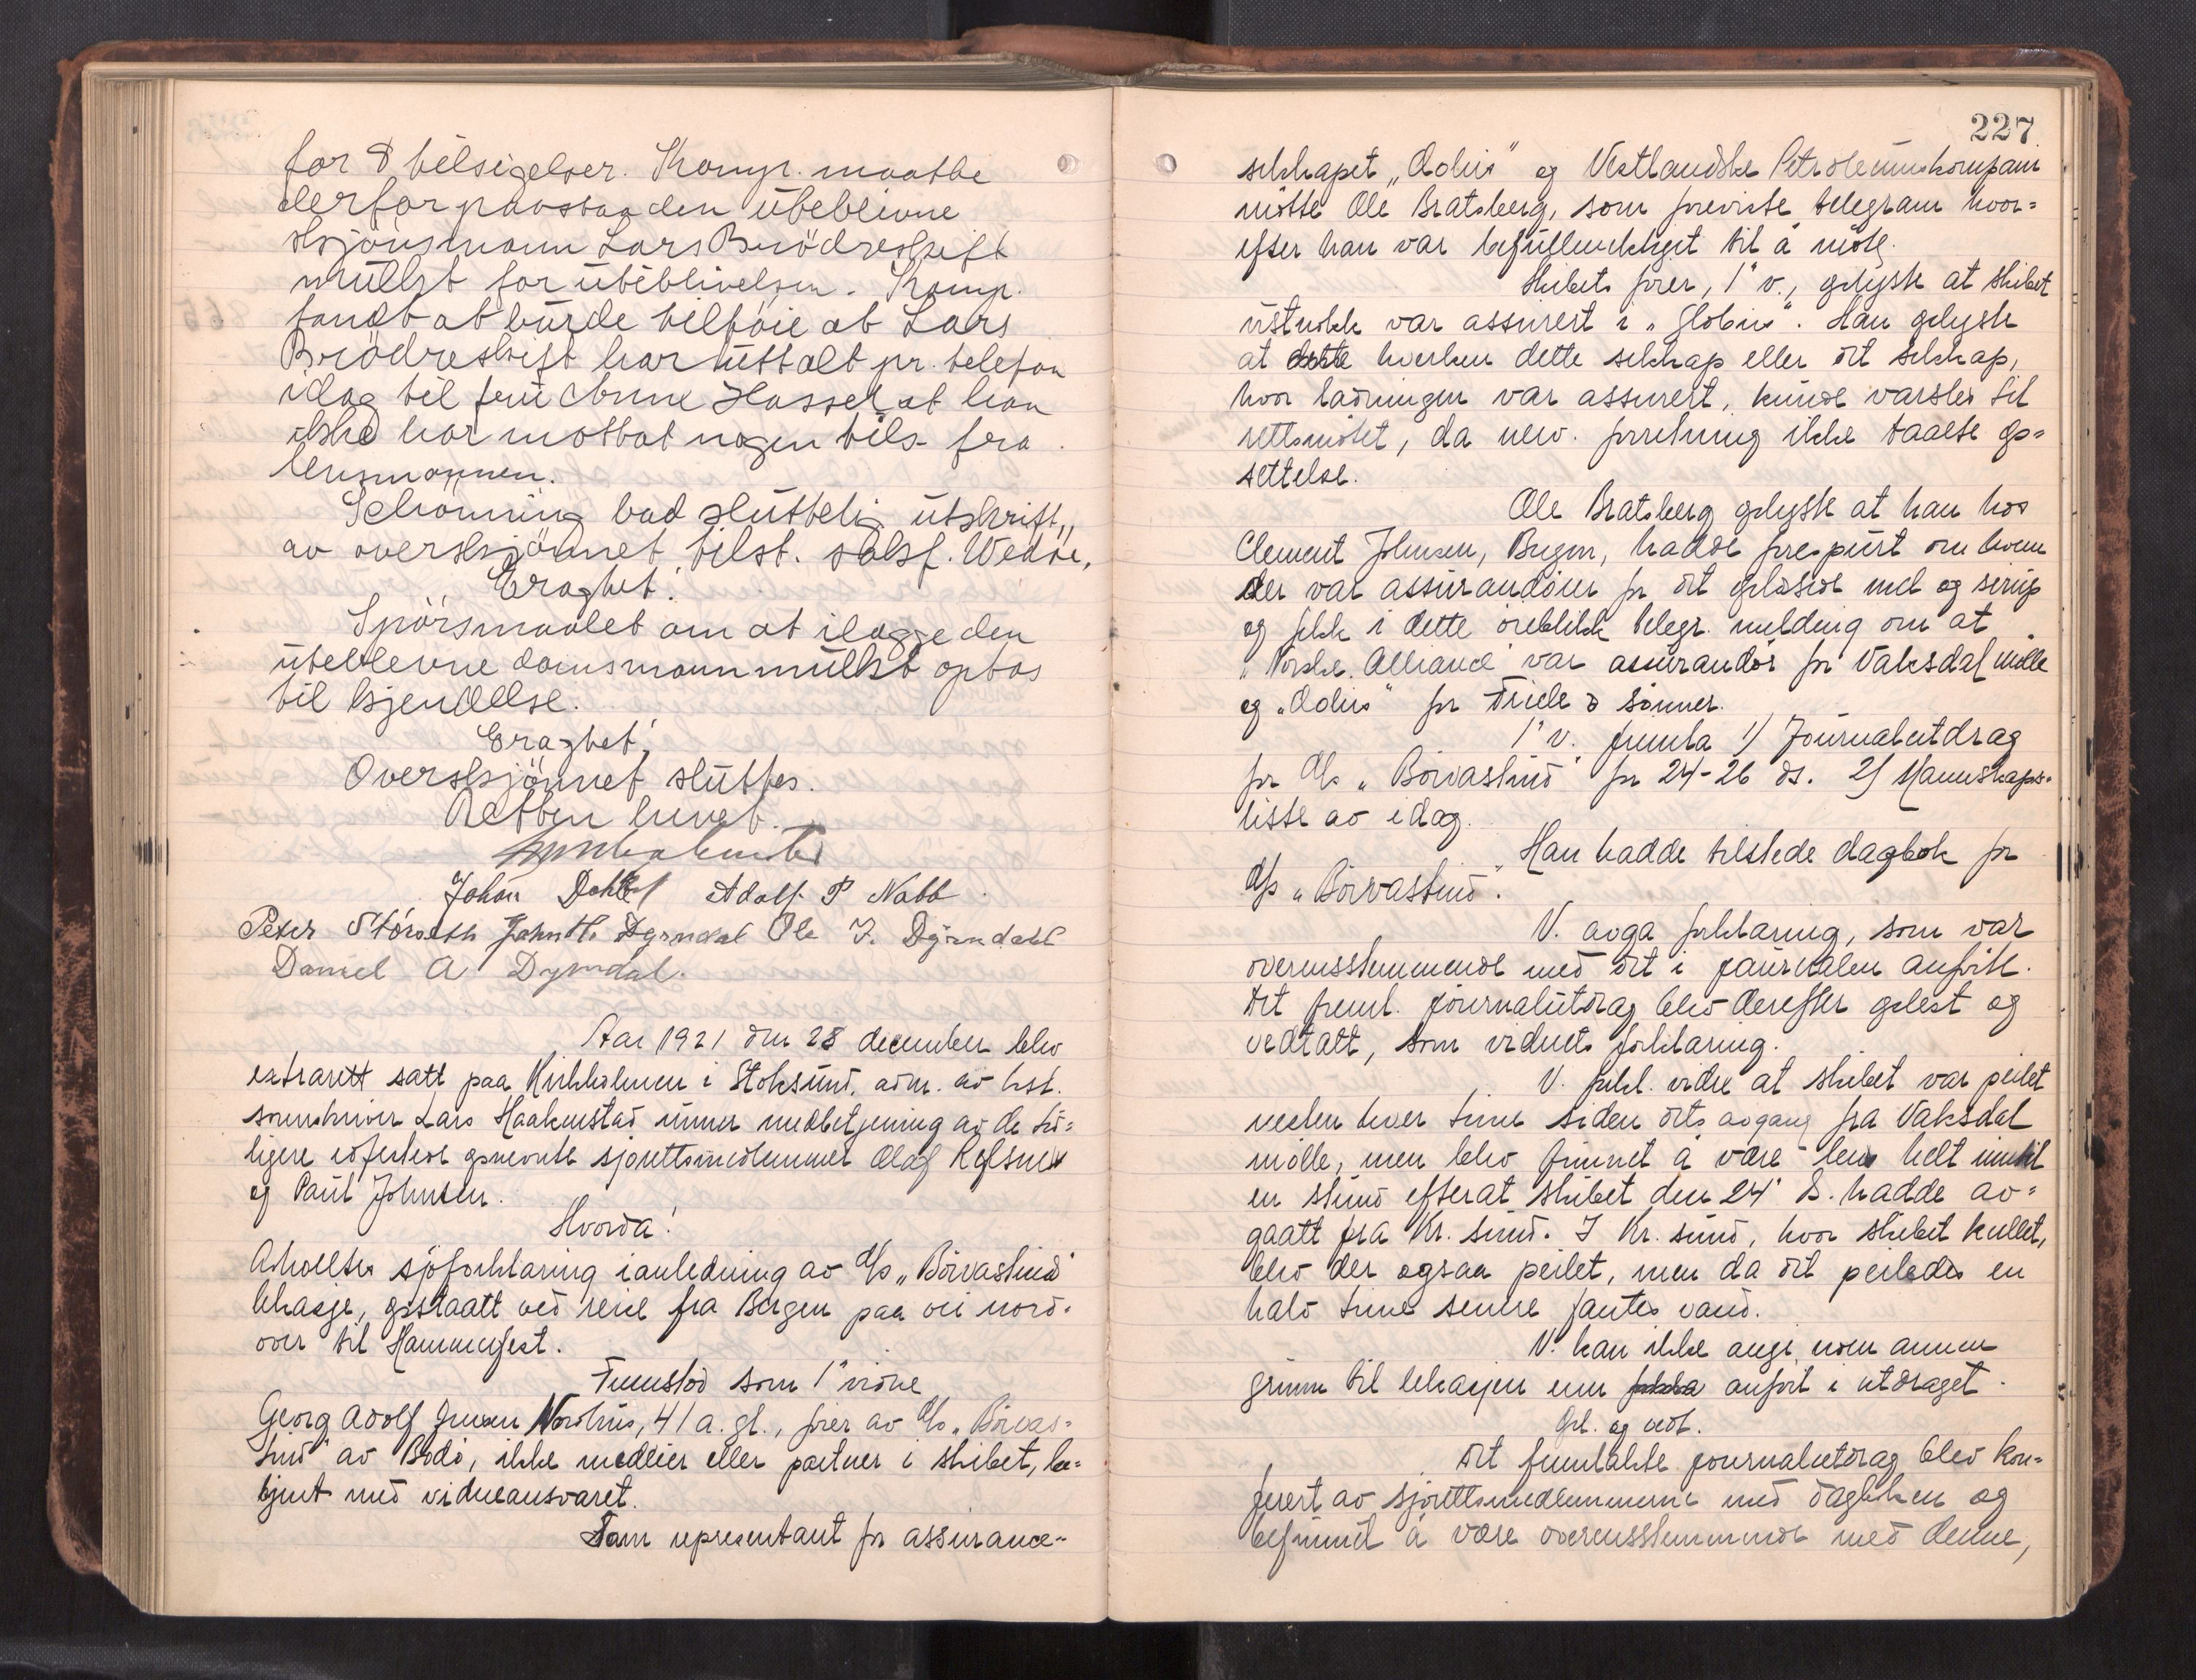 for 8 tilsigelser. Komp. maatte
derfor paastaa den uteblivne
skjönsmann Lars Brödreskift
mulkt for uteblivelsen. Komp.
fandt at burde tilföie at Lars
Brödreskift har uttalt pr. telefon
idag til fru Anne Hassel at han
ikke har mottat nogen tils. fra
lensmannen.
Schönning bad sluttelig utskrift
av overskjönnet tilst. saksf. Wedöe,
Eragtet:
Spörsmaalet om at ilægge den
uteblevne domsmann mulkt optas
til kjendelse.
Eragtet:
Overskjönnet sluttes.
Retten hevet.
Johan Dahl Adolf P Nabb.
Peter Störseth John H. Dyrndal Ole J. Dÿrndahl
Daniel A Dyrndal.
Aar 1921 den 28 december blev
extrarett satt paa Kirkholmen i Stoksund, adm. av kst.
sorenskriver Lars Haakenstad under medbetjening av de tid=
ligere edfestede opnevnte sjörettsmedlemmer Olaf Refsnes
og Paul Johnsen.
Hvorda!
Avholdtes sjöforklaring i anledning av d/s "Börvastind"
lekasje, opstaatt ved reise fra Bergen paa vei nord=
over til Hammerfest.
Fremstod som 1' vidne
Georg Adolf Jensen Nordhus, 41 a. gl., förer av d/s "Börvas=
tind" av Bodö, ikke medeier eller partner i skibet, be=
kjent med vidneansvaret.
Som representant for assurance-
227
selskapet "Æolus" og Vestlandske Petroleumskompani
mötte Ole Bratsberg, som foreviste telegram hvor=
efter han var befullmektiget til å möte.
Skibets förer, 1' v., oplyste at skibet
ustrukk var assurert i "Globus". Han oplyste
at dette hverken dette selskap eller det selskap,
hvor ladningen var assurert, kunde varsles til
rettsmötet, da nerv. forretning ikke taalte op=
settelse.
Ole Bratsberg oplyste at han hos
Clement Johnsen, Bergen, hadde forespurt om hvem
der var assurandörer for det oplossede mel og sirup
og fikk i dette öieblikk telegr. melding om at
"Norske Alliance" var assurandör for Vaksdal mölle
og "Æolus" for Friele & sönner.
1' v. fremla 1) Journalutdrag
for d/s "Börvastind" for 24-26 ds. 2) Mannskaps=
liste av idag.
Han hadde tilstede dagbok for
d/s "Börvastind".
V. avga forklaring, som var
overensstemmende med det i journalen anförte.
Det freml. journalutdrag blev derefter oplest og
vedtatt, som vidnets forklaring.
V. forkl. videre at skibet var peilet
nesten hver time siden dets avgang fra Vaksdal
mölle, men blev funnet å være lens helt inntil
en stund efterat skibet den 24' ds. hadde av=
gaatt fra Kr. sund. I Kr. sund, hvor skibet kullet,
blev der ogsaa peilet, men da det peiledes en
halv time senere fantes vand.
V. kan ikke angi noen annen
grunn til lekasjen enn anfört i utdraget.
Opl. og vedt.
Det fremlakte journalutdrag blev kon=
ferert av sjörettsmedlemmerne med dagboken og
befunnet å være overensstemmende med denne,